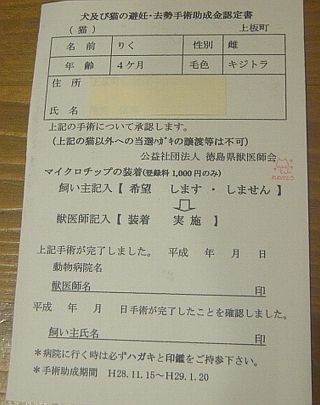 犬及び猫の避妊・去勢手術助成金認定書
（ 猫 ） 上板町
名 前 りく 性別 雌
年 齢 4ケ月 毛色 キジトラ
住 所
氏 名
上記の手術について承認します。
（上記の猫以外への当選ﾊｶﾞｷの譲渡等は不可）
公益社団法人 徳島県獣医師会
マイクロチップの装着(登録料 1,000 円のみ)
飼い主記入【 希望 します ・ しません 】
獣医師記入【 装着 実 施 】
上記手術が完了しました。 平成 年 月 日
動物病院名
獣医師名 印
平成 年 月 日手術が完了したことを確認しました。
飼い主氏名 印
＊病院に行く時は必ずハガキと印鑑をご持参下さい。
＊手術助成期間 H28.11.15～H29.1.20